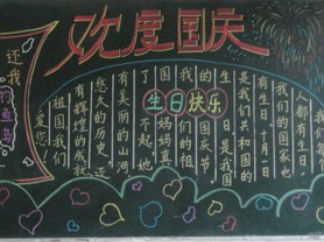 欢度国庆
还我
钓鱼岛
生日快乐
我们
人都有生日，
我们的国家也
有生日，十月一
是我们共和国的
生日，是我国
的国庆节
我们的祖
国妈妈真
了不起他
有美丽的山河
悠久的历史，还
有辉煌的成就
祖国我们
爱您！